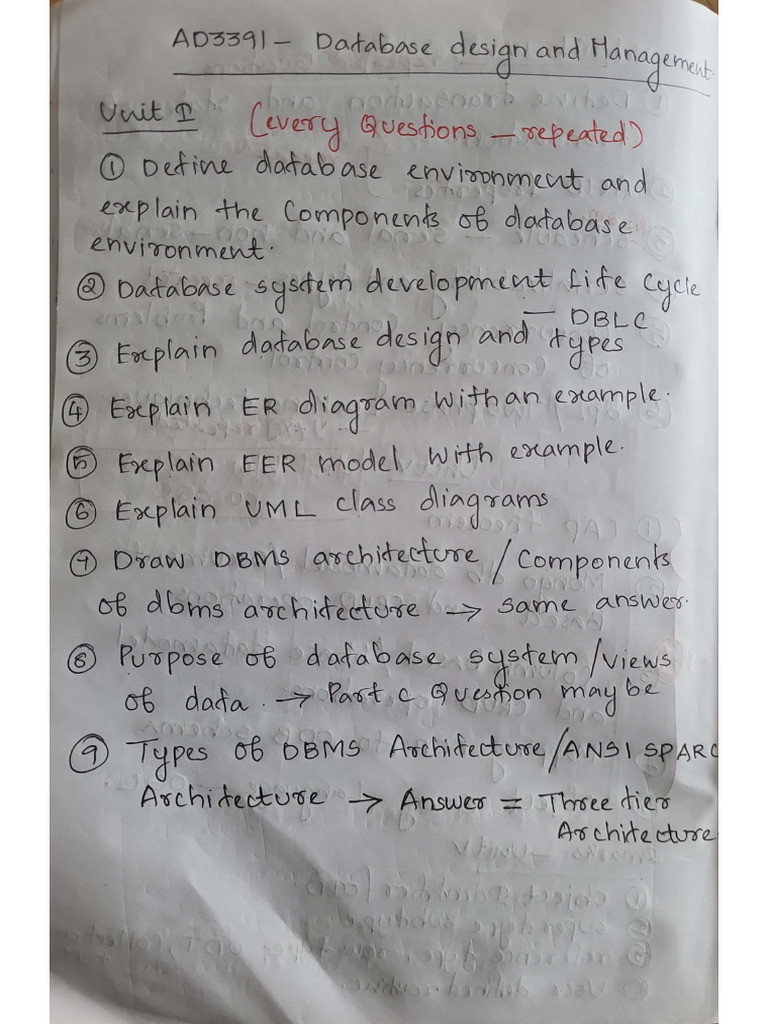 AD3391 - Database design and Management
Unit I (every Questions - repeated)
① Define database environment and
explain the Components of database
environment.
② Database system development life cycle
- DBLC
③ Explain database design and types
④ Explain ER diagram with an example.
⑤ Explain EER model with example.
⑥ Explain UML class diagrams
⑦ Draw DBMS architecture / Components
of dbms architecture → same answer.
⑧ Purpose of database system/views
of data. → Part C Question may be
⑨ Types of DBMS Architecture/ANSI SPARC
Architecture → Answer = Three tier
Architecture